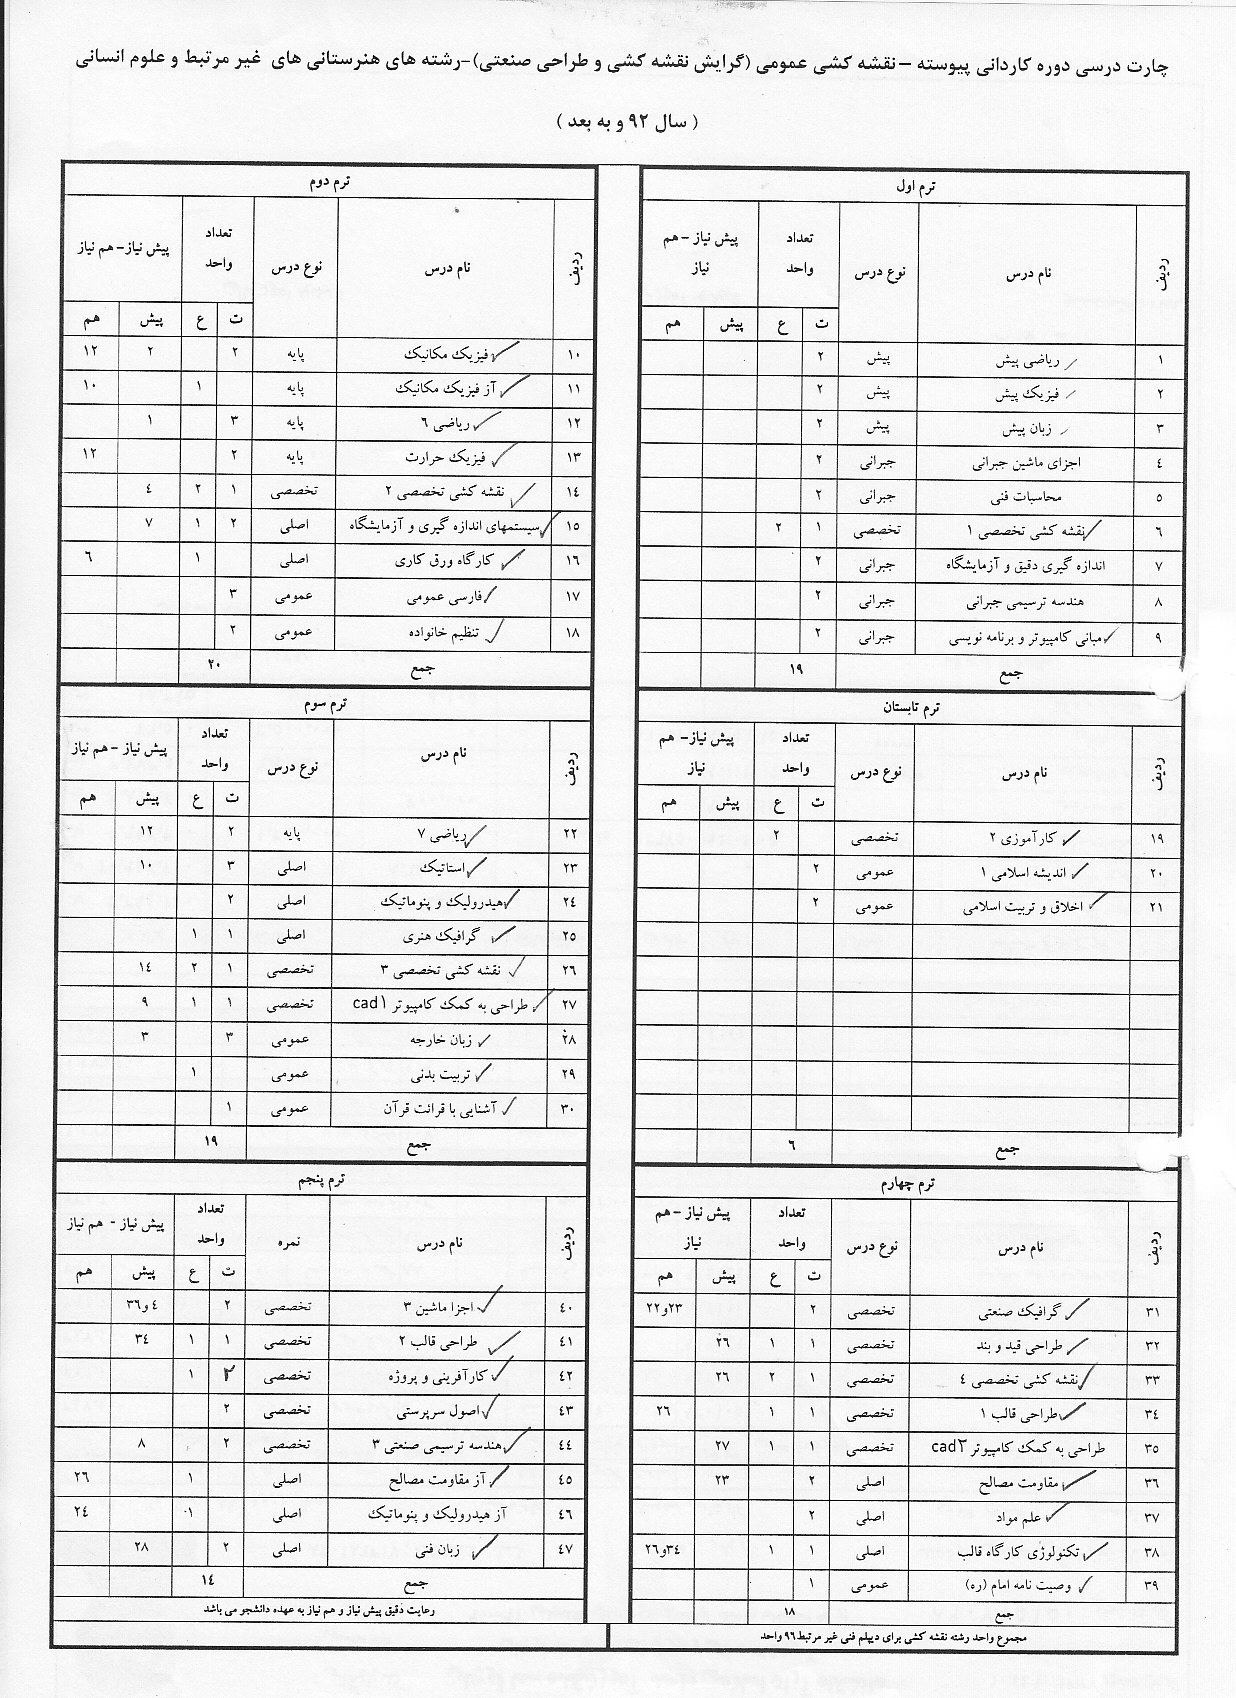 چارت درسی دوره کاردانی پیوسته – نقشه کشی عمومی (گرایش نقشه کشی و طراحی صنعتی)-رشته های هنرستانی های غیر مرتبط و علوم انسانی
( سال ۹۲ و به بعد )
ترم اول
ردیف نام درس نوع درس تعداد واحد پیش نیاز - هم نیاز
ت ع پیش هم
۱ ریاضی پیش پیش ۲
۲ فیزیک پیش پیش ۲
۳ زبان پیش پیش ۲
٤ اجزای ماشین جبرانی جبرانی ۲
٥ محاسبات فنی جبرانی ۲
٦ نقشه کشی تخصصی ۱ تخصصی ۱ ۲
۷ اندازه گیری دقیق و آزمایشگاه جبرانی ۲
۸ هندسه ترسیمی جبرانی جبرانی ۲
۹ مبانی کامپیوتر و برنامه نویسی جبرانی ۲
جمع ۱۹
ترم دوم
ردیف نام درس نوع درس تعداد واحد پیش نیاز- هم نیاز
ت ع پیش هم
۱۰ فیزیک مکانیک پایه ۲ ۲ ۱۲
۱۱ آز فیزیک مکانیک پایه ۱ ۱۰
۱۲ ریاضی ٦ پایه ۳ ۱
۱۳ فیزیک حرارت پایه ۲ ۱۲
۱٤ نقشه کشی تخصصی ۲ تخصصی ۱ ۲ ٤
۱٥ سیستمهای اندازه گیری و آزمایشگاه اصلی ۲ ۱ ۷
۱٦ کارگاه ورق کاری اصلی ۱ ٦
۱۷ فارسی عمومی عمومی ۳
۱۸ تنظیم خانواده عمومی ۲
جمع ۲۰
ترم تابستان
ردیف نام درس نوع درس تعداد واحد پیش نیاز- هم نیاز
ت ع پیش هم
۱۹ کارآموزی ۲ تخصصی ۲
۲۰ اندیشه اسلامی ۱ عمومی ۲
۲۱ اخلاق و تربیت اسلامی عمومی ۲
جمع ٦
ترم سوم
ردیف نام درس نوع درس تعداد واحد پیش نیاز - هم نیاز
ت ع پیش هم
۲۲ ریاضی ۷ پایه ۲ ۱۲
۲۳ استاتیک اصلی ۳ ۱۰
۲٤ هیدرولیک و پنوماتیک اصلی ۲
۲٥ گرافیک هنری اصلی ۱ ۱
۲٦ نقشه کشی تخصصی ۳ تخصصی ۱ ۲ ۱٤
۲۷ طراحی به کمک کامپیوتر cad۱ تخصصی ۱ ۱ ۹
۲۸ زبان خارجه عمومی ۳ ۳
۲۹ تربیت بدنی عمومی ۱
۳۰ آشنایی با قرائت قرآن عمومی ۱
جمع ۱۹
ترم چهارم
ردیف نام درس نوع درس تعداد واحد پیش نیاز -هم نیاز
ت ع پیش هم
۳۱ گرافیک صنعتی تخصصی ۲ ۲۲و۲۳
۳۲ طراحی قید و بند تخصصی ۱ ۱ ۲٦
۳۳ نقشه کشی تخصصی ٤ تخصصی ۱ ۲ ۲٦
۳٤ طراحی قالب ۱ تخصصی ۱ ۱ ۲٦
۳٥ طراحی به کمک کامپیوتر cad۲ تخصصی ۱ ۱ ۲۷
۳٦ مقاومت مصالح اصلی ۲ ۲۳
۳۷ علم مواد اصلی ۲
۳۸ تکنولوژی کارگاه قالب اصلی ۱ ۱ ۲٦و۳٤
۳۹ وصیت نامه امام (ره) عمومی ۱
جمع ۱۸
ترم پنجم
ردیف نام درس نمره تعداد واحد پیش نیاز - هم نیاز
ت ع پیش هم
٤۰ اجزا ماشین ۳ تخصصی ۲ ٤و۳٦
٤۱ طراحی قالب ۲ تخصصی ۱ ۱ ۳٤
٤۲ کارآفرینی و پروژه تخصصی ۲ ۱
٤۳ اصول سرپرستی تخصصی ۲
٤٤ هندسه ترسیمی صنعتی ۳ تخصصی ۲ ۸
٤٥ آز مقاومت مصالح اصلی ۱ ۲٦
٤٦ آز هیدرولیک و پنوماتیک اصلی ۱ ۲٤
٤۷ زبان فنی اصلی ۲ ۲۸
جمع ۱٤
رعایت دقیق پیش نیاز و هم نیاز به عهده دانشجو می باشد
مجموع واحد رشته نقشه کشی برای دیپلم فنی غیر مرتبط ۹٦ واحد